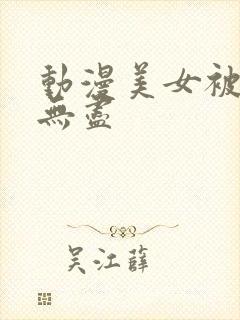 動漫美女被
無盡
吳江薛